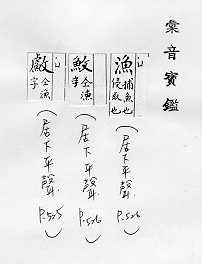 彙音寶鑑
漁 捕魚也侵取也
(居下平聲 P.526)
䰻 仝漁字
(居下平聲 P.526)
𣀷 仝漁字
(居下平聲 P.525)